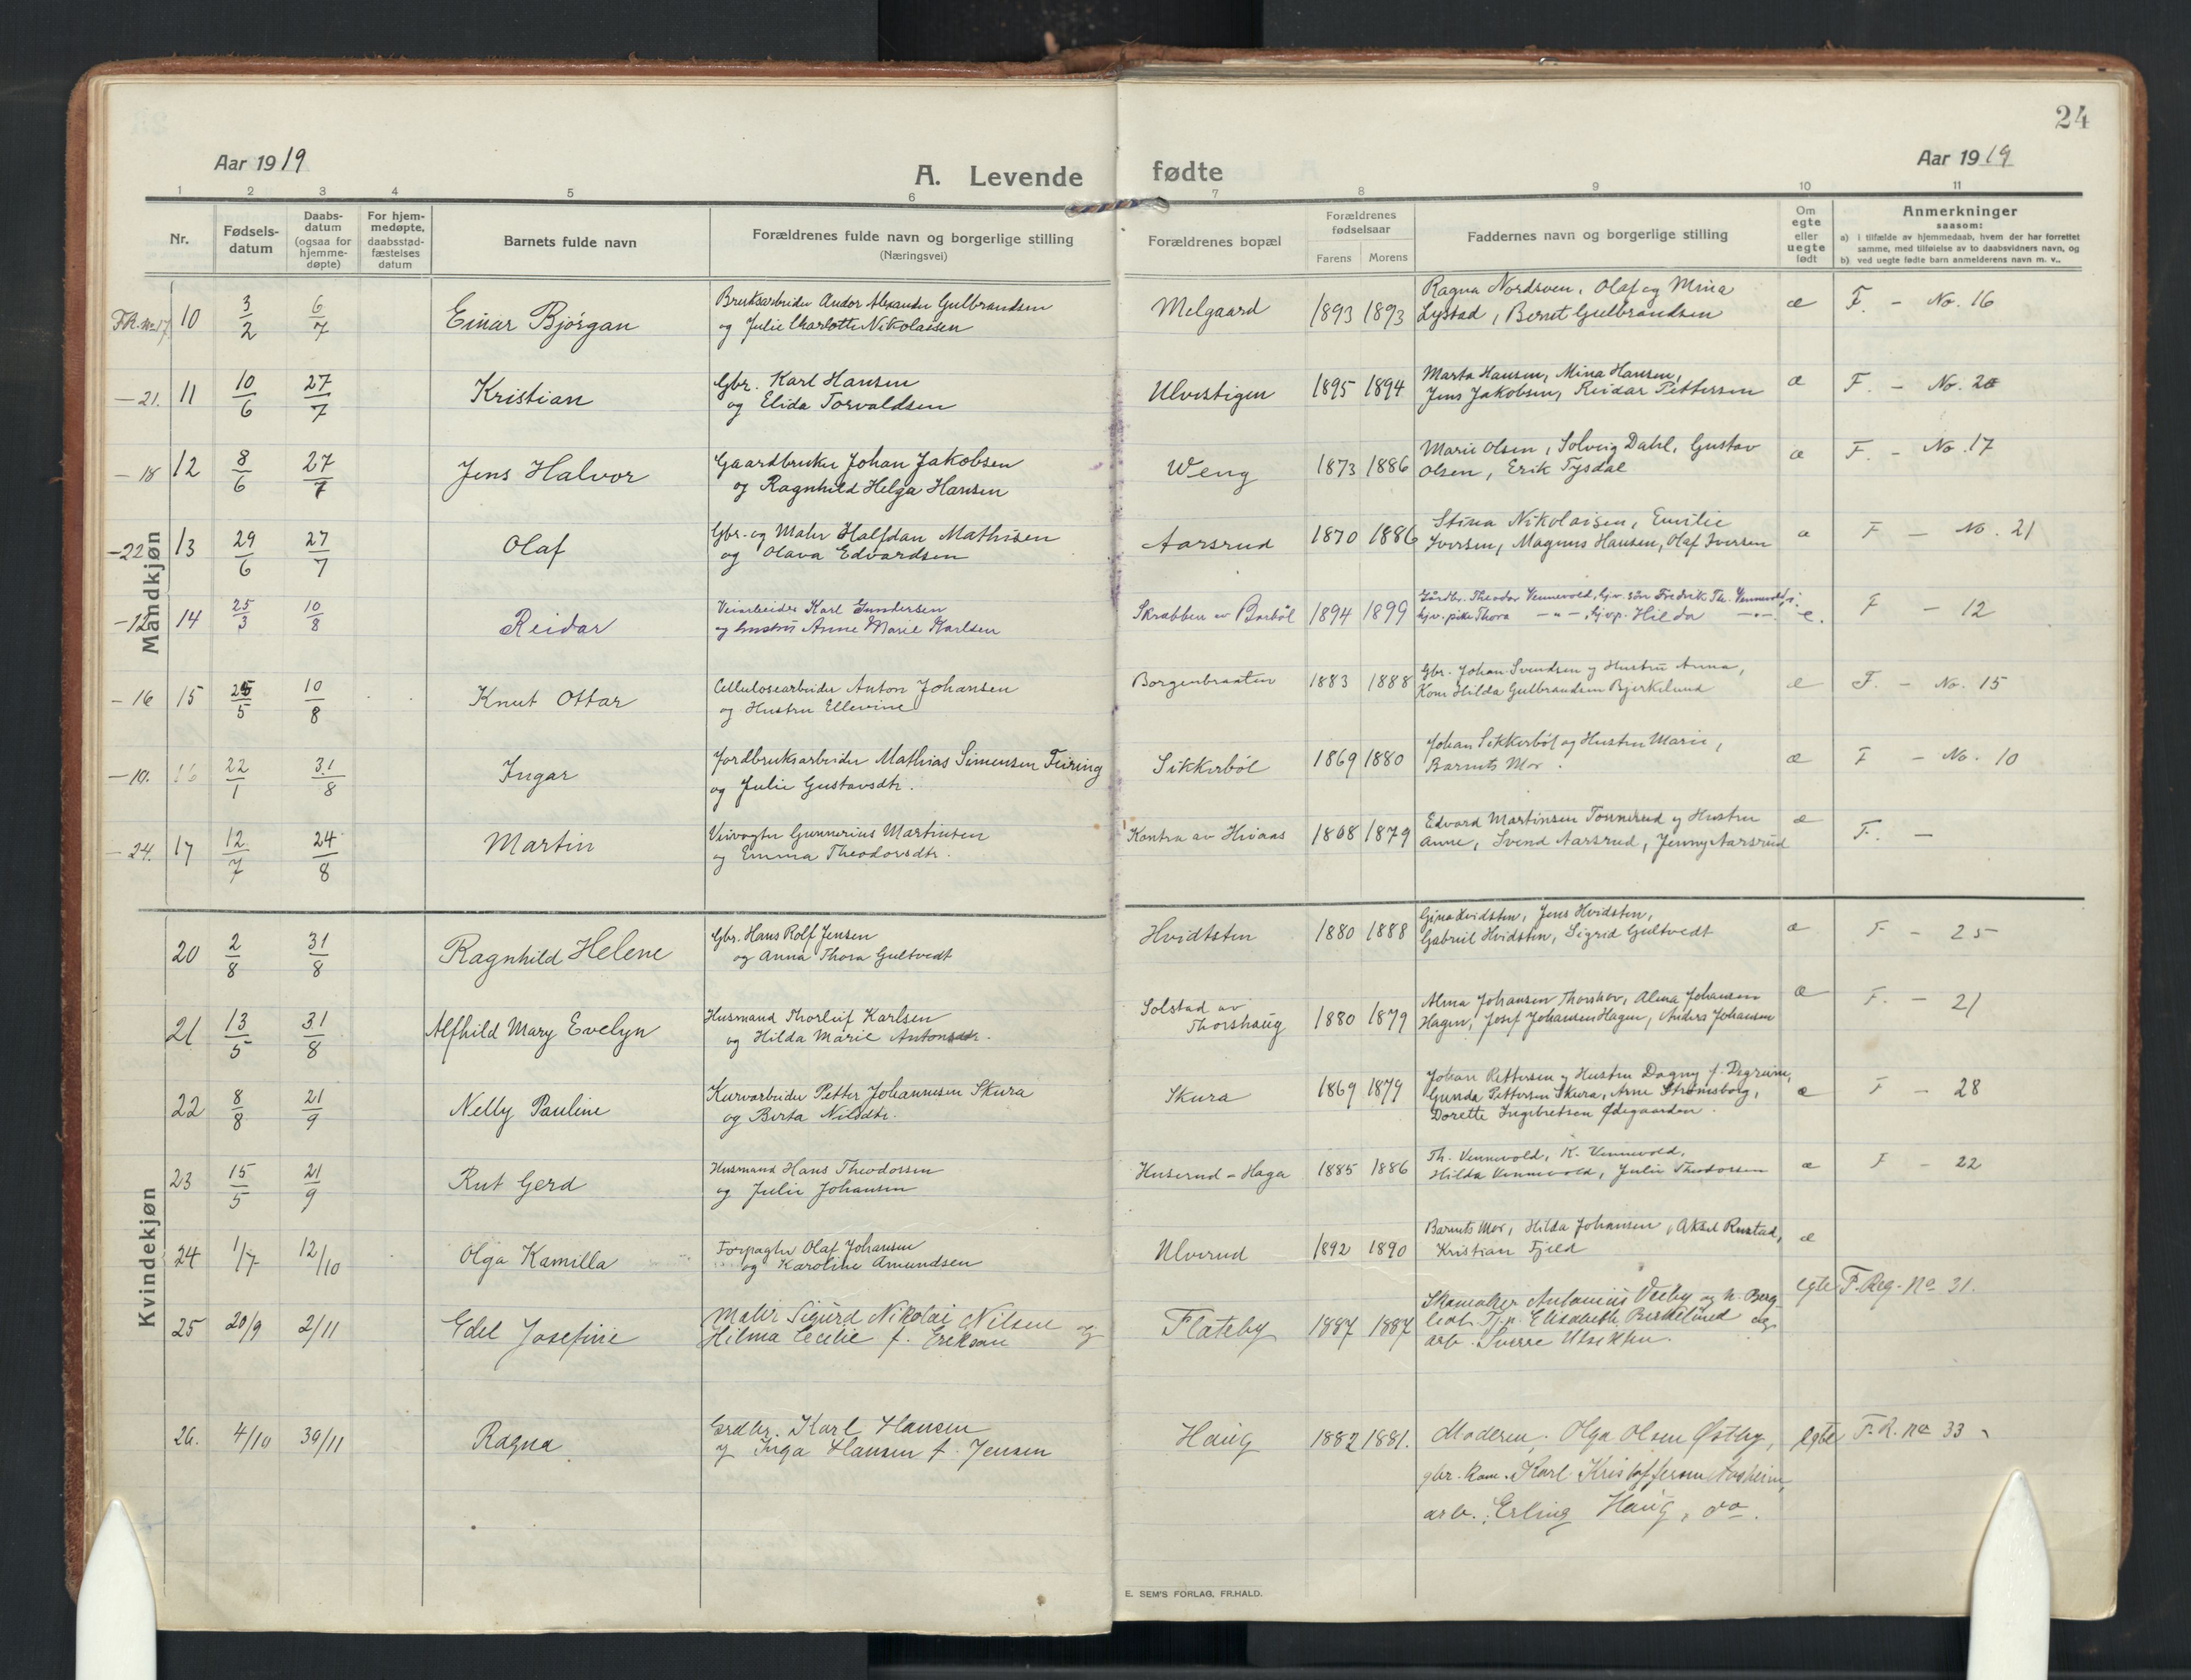 24
Aar 1919
A. Levende fødte
Aar 1919
1 2 3 4 5 6 7 8 9 10 11
Nr.
Fødsels-
datum
Daabs-
datum
(ogsaa for
hjemme-
døpte)
For hjem-
medøpte,
daabsstad-
fæstelses
datum
Barnets fulde navn
Forældrenes fulde navn og borgerlige stilling
(Næringsvei)
Forældrenes bopæl
Forældrenes
fødselsaar
Farens Morens
Faddernes navn og borgerlige stilling
Om
egte
eller
uegte
født
Anmerkninger
saasom:
a) i tilfælde av hjemmedaab, hvem der har forrettet
samme, med tilføielse av to daabsvidners navn, og
b) ved uegte fødte barn anmelderens navn m. v..
Mandkjøn
F.R. no 17 10 3/2 6/7 Einar Bjørgan
Bruksarbeider Andor Alexander Gulbrandsen
og Julie Charlotte Nikolaisen
Melgaard 1893 1893
Ragna Nordsven, Olaf og Mina
Lystad, Bernt Gulbrandsen
æ F. - No. 16
- 21. 11 10/6 27/7 Kristian
Gbr. Karl Hansen
og Elida Torvaldsen
Ulvestigen 1895 1894
Marta Hansen, Mina Hansen,
Jens Jakobsen, Reidar Pettersen
æ F. - No. 20
- 18 12 8/6 27/7 Jens Halvor
Gaardbruker Johan Jakobsen
og Ragnhild Helga Hansen
Weng 1873 1886
Marie Olsen, Solveig Dahl, Gustav
Olsen, Erik Tysdal
æ F. - No. 17
- 22 13 29/6 27/7 Olaf
Gbr. og Maler Halfdan Mathisen
og Olava Edvardsen
Aarsrud 1870 1886
Stina Nikolaisen, Emilie
Iversen, Magnus Hansen, Olaf Iversen
æ F - No. 21
- 12 14 25/3 10/8 Reidar
Veiarbeider Karl Gundersen
og hustru Anne Marie Karlsen
Skrabben av Børbøl 1894 1899
Gårdbr. Theodor Vennevold, hjv. sön Fredrik Th. Vennevold,
hjv. pike Thora - " - , hjv.p. Hilda - " -
e. F - 12
- 16 15 25/5 10/8 Knut Ottar
Cellulosearbeider Anton Johansen
og Hustru Ellevine
Borgenbraaten 1883 1888
Gbr. Johan Svendsen og Hustru Anna,
Kone Hilda Gulbrandsen Bjerkelund
e F. - No. 15
- 10. 16 22/1 31/8 Ingar
Jordbruksarbeider Mathias Simensen Feiring
og Julie Gustavsdtr.
Sikkerbøl 1869 1880
Johan Sikkerbøl og Hustru Marie,
Barnets Mor.
æ F - No. 10
- 24. 17 12/7 24/8 Martin
Veivogter Gunnerius Martinsen
og Emma Theodorsdtr.
Kontra av Hvaas 1868 1879
Edvard Martinsen Tonnerud og Hustru
Anne, Svend Aarsrud, Jenny Aarsrud
æ F. -
Kvindekjøn
20 2/8 31/8 Ragnhild Helene
Gbr. Hans Rolf Jensen
og Anna Thora Gultvedt
Hvidtsten 1880 1888
Gina Hvidsten, Jens Hvidsten,
Gabriel Hvidsten, Sigrid Gultvedt
æ F - 25
21 13/5 31/8 Alfhild Mary Evelyn
Husmand Thorleif Karlsen
og Hilda Marie Antonsdtr.
Solstad av
Thorshaug 1880 1879
Alma Johansen Thorshov, Alma Johansen
Hagen, Josef Johansen Hagen, Andera Johansen
æ F. - 21
22 8/8 21/9 Nelly Pauline
Kurvarbeider Petter Johannesen Skura
og Berta Nilsdtr.
Skura 1869 1879
Johan Pettersen og Hustru Dagny f. Degrum,
Gunda Pettersen Skura, Arne Strømsborg,
Dorette Ingebretsen Ødegaarden.
æ F - 28
23 15/5 21/9 Rut Gerd
Husmand Hans Theodorsen
og Julie Johansen
Huserud - Haga 1885 1886
Th. Vennevold, K. Vennevold,
Hilda Vennevold, Julie Theodorsen
æ F - 22
24 1/7 12/10 Olga Kamilla
Forpagter Olaf Johansen
og Karoline Amundsen
Ulverud 1892 1890
Barnets Mor, Hilda Johansen, Aksel Rustad,
Kristian Fjeld
æ
25 20/9 2/11 Edel Josefine
Maler Sigurd Nikolai Nilsen og
Hilma Cecilie f. Erikson
Flateby 1887 1887
Skomaker Antonius Veeby og h. Berg-
liot, Tj.p. Elisabeth Berkelund og
arb. Sverre Utsikten.
egte F. Reg. No 31.
26. 4/10 30/11 Ragna
Grdbr. Karl Hansen
og Inga Hansen f. Jensen
Haug 1882 1881.
Moderen, Olga Olsen Østby,
gbr. kone. Karl Kristoffersen Aasheim,
arb. Erling Haug, do.
egte F. R. no 33
E. SEM'S FORLAG, FR.HALD.